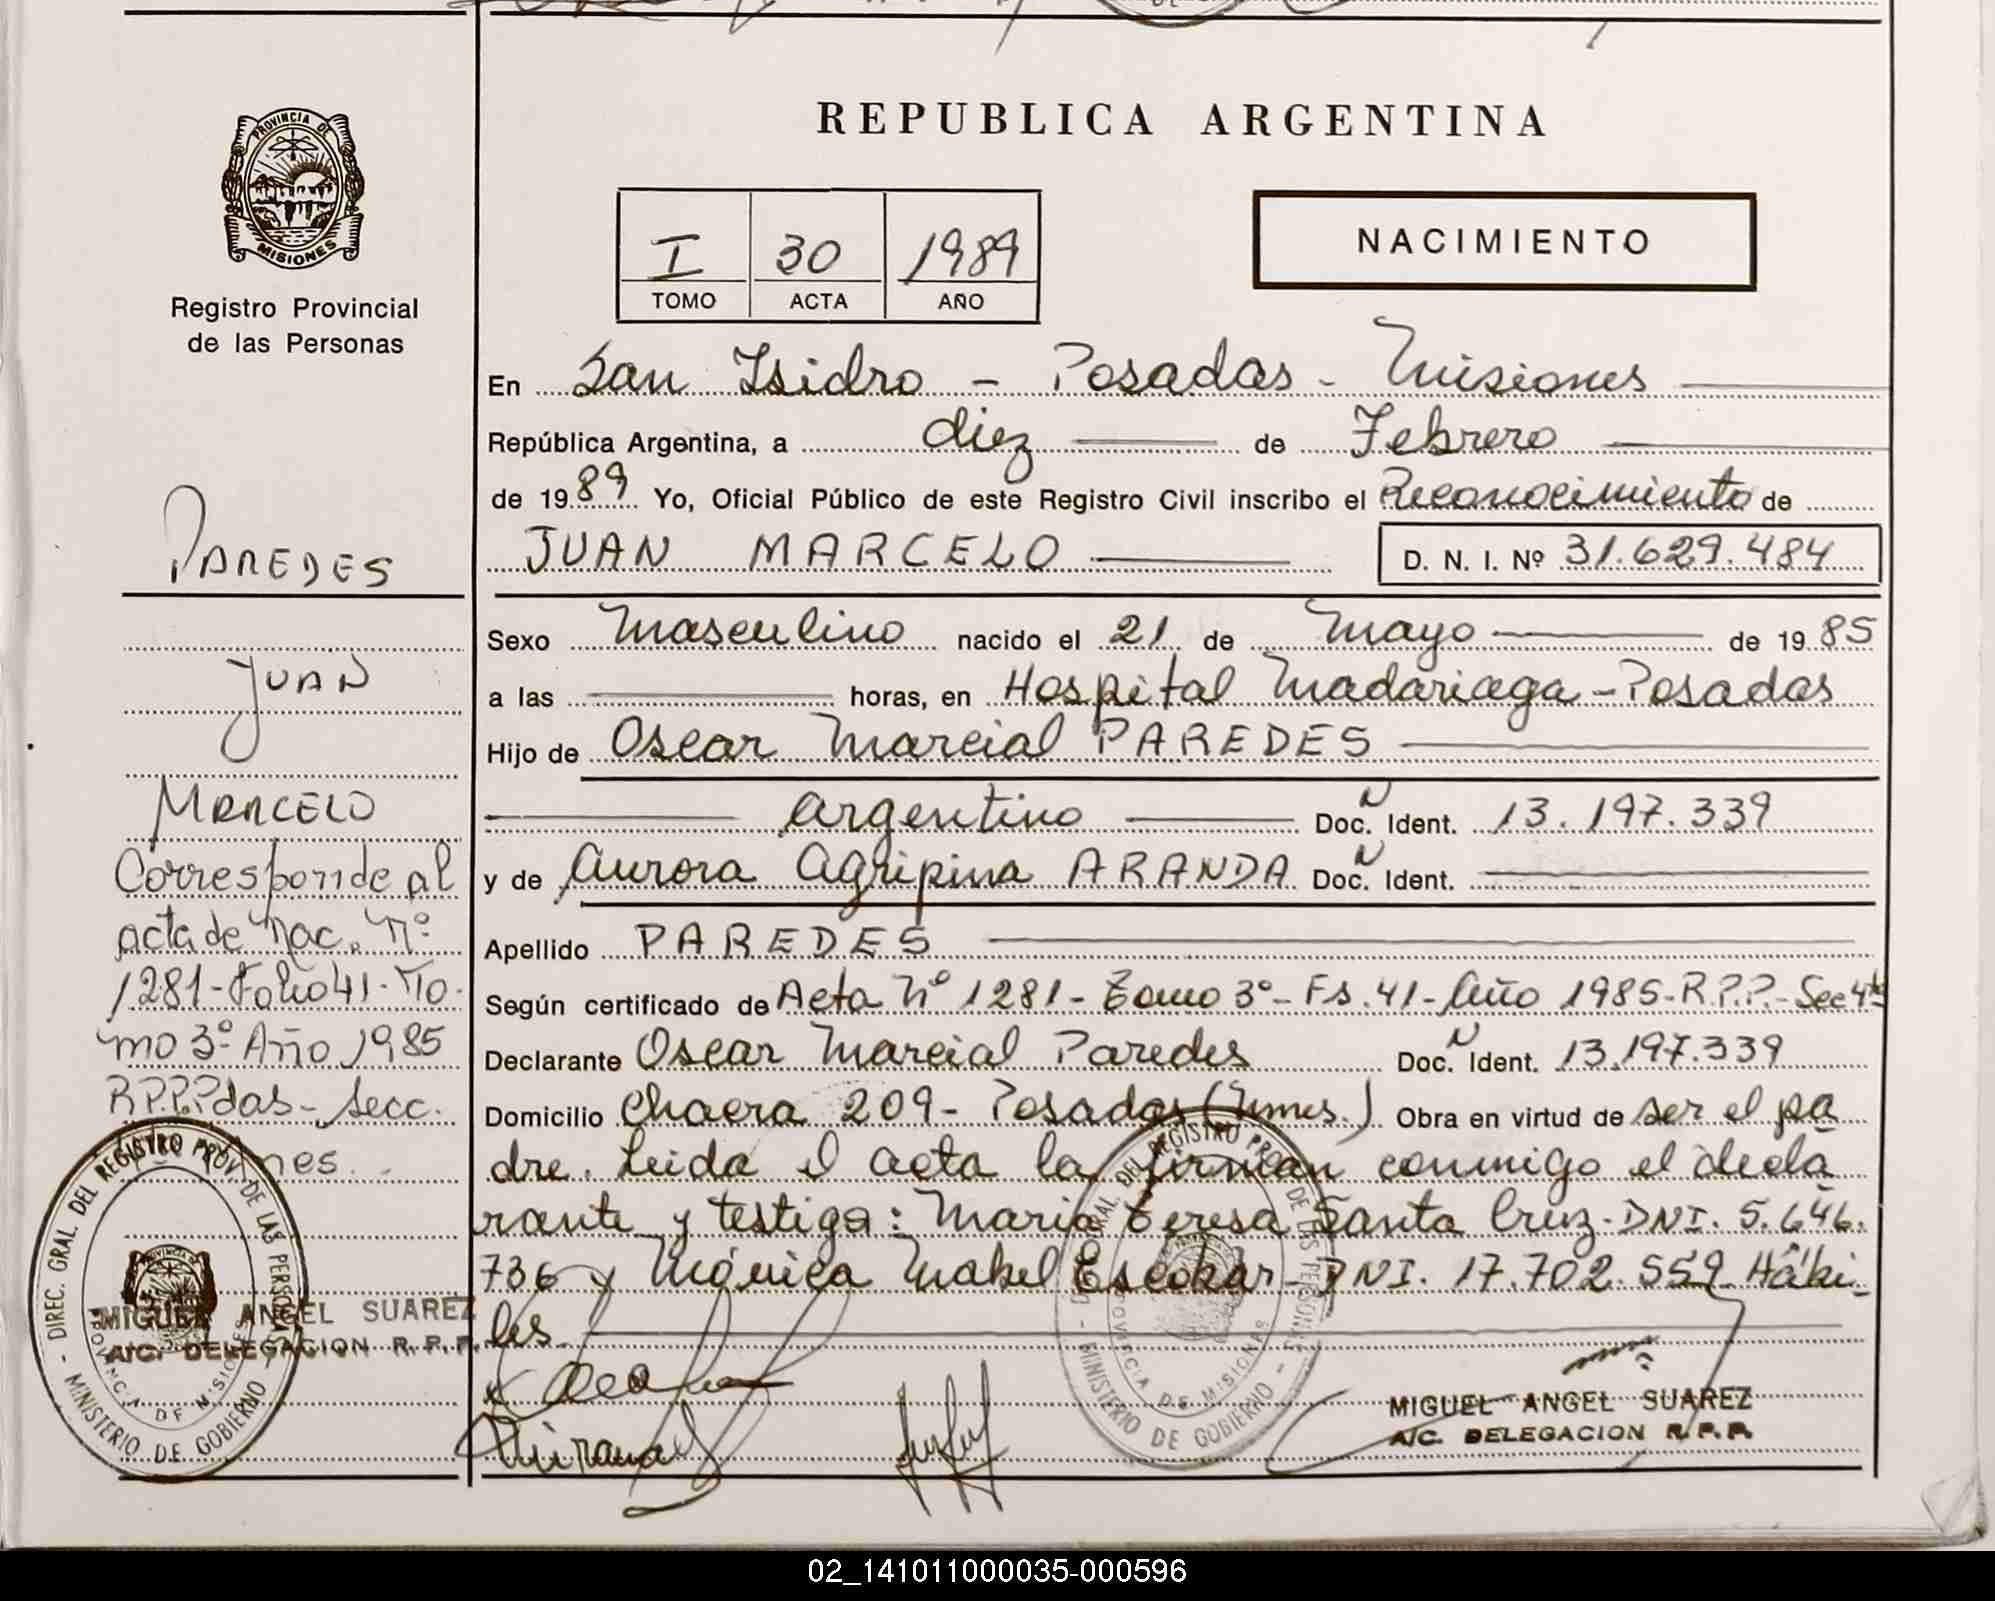 REPUBLICA ARGENTINA
PROVINCIA DE
MISIONES
Registro Provincial
de las Personas
I 30 1989
TOMO ACTA AÑO
NACIMIENTO
En San Isidro - Posadas - Misiones
República Argentina, a diez de Febrero
de 1989 Yo, Oficial Público de este Registro Civil inscribo el Reconocimiento de
JUAN MARCELO D. N. I. Nº 31.629.484
Sexo Masculino nacido el 21 de Mayo de 1985
a las horas, en Hospital Madariaga - Posadas
Hijo de Oscar Marcial PAREDES
Argentino Doc. N Ident. 13.197.339
y de Aurora Agripina ARANDA Doc. N Ident.
Apellido PAREDES
Según certificado de Acta Nº 1281 - Tomo 3º - Fs. 41 - Año 1985 - R.P.P. - Sec 4ta
Declarante Oscar Marcial Paredes Doc. N Ident. 13.197.339
Domicilio Chacra 209 - Posadas (Mnes.) Obra en virtud de ser el pa
dre. Leida el acta la firman conmigo el decla
rante y testiga: Maria Teresa Santa Cruz - DNI. 5.646.
736 y Mónica Mabel Escobar DNI. 17.702.559 Hábi
les.
PAREDES
JUAN
MARCELO
Corresponde al
acta de Nac. Nº
1281 - Folio 41 - To
mo 3º Año 1985
R.P.P. Pdas - Secc.
DIREC. GRAL. DEL REGISTRO PROV. DE LAS PERSONAS
PROVINCIA DE MISIONES
MINISTERIO DE GOBIERNO
MIGUEL ANGEL SUAREZ
A/C. DELEGACION R. P. P.
DIREC. GRAL. DEL REGISTRO PROV. DE LAS PERSONAS
PROVINCIA DE MISIONES
MINISTERIO DE GOBIERNO
MIGUEL ANGEL SUAREZ
A/C. DELEGACION R. P. P.
02_141011000035-000596